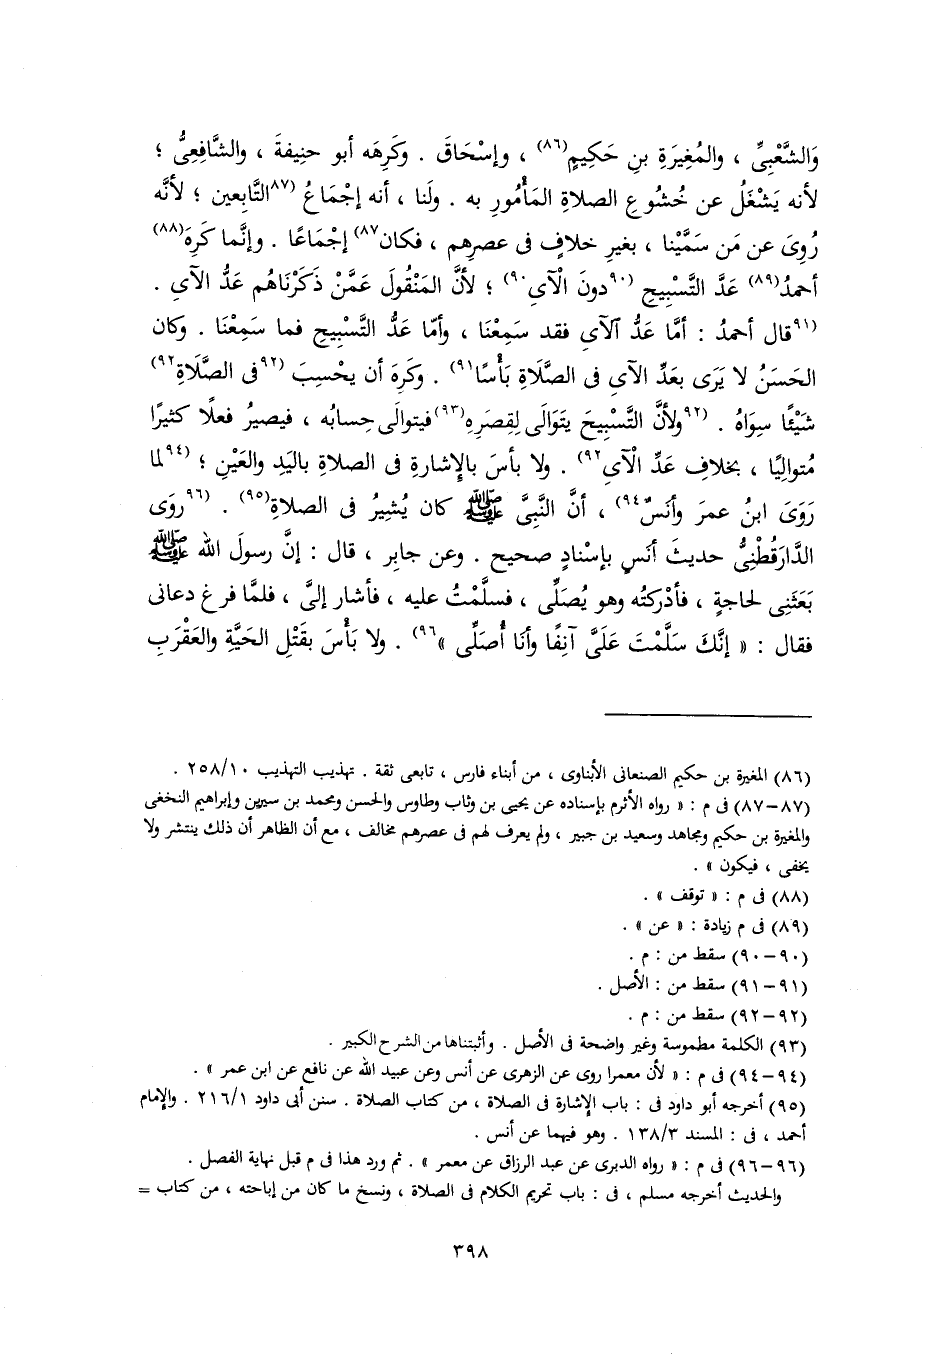 وَالشَّعْبِىِّ ، والمُغِيَرَةِ بنِ حَكِيمٍ(٨٦) ، وإسْحَاقَ . وكَرِهَه أبو حنِيفةَ ، والشَّافِعِىُّ ؛
لأنه يَشْغَلُ عن خُشُوعِ الصلاةِ المَأْمُورِ به . ولَنا ، أنه إجْمَاعُ (٨٧التَّابِعين ؛ لأنَّه
رُوِىَ عن مَن سَمَّيْنا ، بغيرِ خلافٍ فى عصرِهم ، فكان٨٧) إجْمَاعًا . وإنَّما كَرِهَ(٨٨)
أحمدُ(٨٩) عَدَّ التَّسْبِيحِ (٩٠دونَ الْآىِ٩٠) ؛ لأنَّ المَنْقُولَ عَمَّنْ ذَكَرْنَاهُم عَدُّ الآىِ .
(٩١قال أحمدُ : أمَّا عَدُّ الآىِ فقد سَمِعْنَا ، وأمّا عَدُّ التَّسْبِيحِ فما سَمِعْنَا . وكان
الحَسَنُ لا يَرَى بعَدِّ الآىِ فى الصَّلَاةِ بَأْسًا٩١) . وكَرِهَ أن يحْسِبَ (٩٢فى الصَّلَاةِ٩٢)
شَيْئًا سِوَاهُ . (٩٢ولأنَّ التَّسْبِيحَ يتَوَالَى لِقِصَرِهِ(٩٣)فيتوالَى حِسابُه ، فيصيرُ فعلًا كثيرًا
مُتواليًا ، بخلافِ عَدِّ الْآىِ٩٢) . ولا بأسَ بالإِشارةِ فى الصلاةِ باليَدِ والعَيْنِ ؛ (٩٤لما
رَوَى ابنُ عمرَ وأنَسٌ٩٤) ، أنَّ النَّبِىَّ ﷺ كان يُشِيرُ فى الصلاةِ(٩٥) . (٩٦رَوَى
الدَّارَقُطْنِىُّ حديثَ أنَسٍ بإسْنادٍ صحيح . وعن جابِر ، قال : إنَّ رسولَ الله ﷺ
بَعَثَنِى لحاجةٍ ، فأدْركتُه وهو يُصَلِّى ، فسلَّمْتُ عليه ، فأشار إلىَّ ، فلمَّا فرغ دعانى
فقال : « إنَّكَ سَلَّمْتَ عَلَىَّ آنِفًا وأنَا أُصَلِّى »٩٦) . ولا بَأْسَ بقَتْلِ الحَيَّةِ والعَقْرَبِ
(٨٦) المغيرة بن حكيم الصنعانى الأبناوى ، من أبناء فارس ، تابعى ثقة . تهذيب التهذيب ٢٥٨/١٠ .
(٨٧-٨٧) فى م : « رواه الأثرم بإسناده عن يحيى بن وثاب وطاوس والحسن ومحمد بن سيرين وإبراهيم النخعى
والمغيرة بن حكيم ومجاهد وسعيد بن جبير ، ولم يعرف لهم فى عصرهم مخالف ، مع أن الظاهر أن ذلك ينتشر ولا
يخفى ، فيكون » .
(٨٨) فى م : « توقف » .
(٨٩) فى م زيادة : « عن » .
(٩٠-٩٠) سقط من : م .
(٩١-٩١) سقط من : الأصل .
(٩٢-٩٢) سقط من : م .
(٩٣) الكلمة مطموسة وغير واضحة فى الأصل . وأثبتناها من الشرح الكبير .
(٩٤-٩٤) فى م : « لأن معمرا روى عن الزهرى عن أنس وعن عبيد الله عن نافع عن ابن عمر » .
(٩٥) أخرجه أبو داود فى : باب الإشارة فى الصلاة ، من كتاب الصلاة . سنن أبى داود ٢١٦/١ . والإمام
أحمد ، فى : المسند ١٣٨/٣ . وهو فيهما عن أنس .
(٩٦-٩٦) فى م : « رواه الدبرى عن عبد الرزاق عن معمر » . ثم ورد هذا فى م قبل نهاية الفصل .
والحديث أخرجه مسلم ، فى : باب تحريم الكلام فى الصلاة ، ونسخ ما كان من إباحته ، من كتاب =
٣٩٨